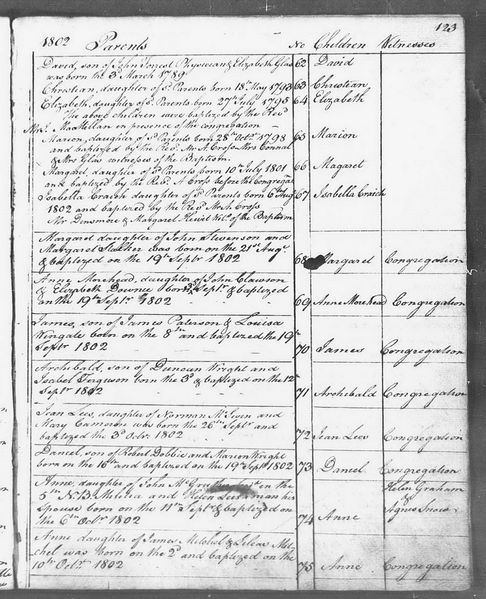 123
1802 Parents No Children Witnesses
David, son of John Forrest Physician & Elizabeth Glas 62 David
was born the 3d March 1789
Christian, daughter of Sd Parents born 18th May 1793 63 Christian
Elizabeth, daughter of Sd Parents born 27th July 1795 64 Elizabeth
The above children were baptized by the Revd
MacMillan in presence of the congregation
Marion, daughter of Sd Parents born 28th Octr 1798 65 Marion
and baptized by the Revd Mr A Cross Mrs Connal
& Mrs Glas witnesses of the Baptism.
Margaret daughter of Sd Parents born 10th July 1801 66 Magaret
and baptized by the Revd A Cross before the Congregan
Isabella Craich daughter of Sd Parents born 6th Augt 67 Isabella Craich
1802 and baptized by the Revd Mr A Cross
Mr Dinsmore & Margaret of the Baptism
Margaret daughter of John Stevenson and
Margaret was born on the 21st Augt
& baptized on the 19th Septr 1802 68 Margaret Congregation
Anne Morehead, daughter of John Clawson
& Elizabeth Downie born Septr & baptized
on the 19th Septr 1802 69 Anne Morehead Congregation
James, son of James Paterson & Louisa
Wingate born on the 8th and baptized the 19th
Septr 1802 70 James Congregation
Archibald, son of Duncan Wright and
Isabel Ferguson born the 3d & baptized on the 12th
Septr 1802 71 Archibald Congregation
Jean Lees, daughter of Norman and
Mary Cameron was born the 26th Septr and
baptized the 3d Octr 1802 72 Jean Lees Congregation
Daniel, son of Robert Dobbie and Marion Wright
born on the 16th and baptized on the 19th Septr 1802 73 Daniel Congregation
Anne, daughter of John in the Helen Graham
5th N.B. Militia and Helen his &
Spouse born on the 11th Septr & baptized Agnes Snow
on the 6th Octr 1802 74 Anne
Anne daughter of James Mitchel & Lilias Mit-
chel was born on the 2d and baptized on the
10th Octr 1802 75 Anne Congregation